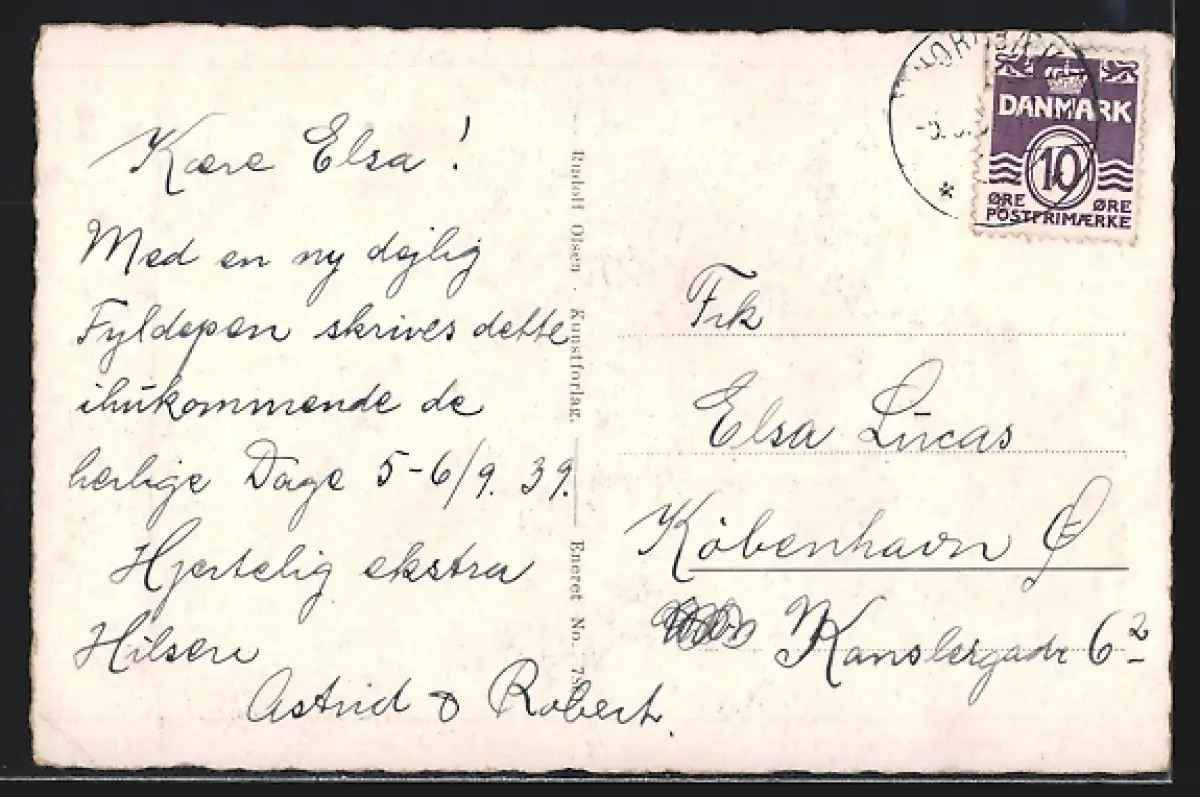 Kære Elsa!
Med en ny dejlig
Fyldepen skrives dette
ihukommende de
herlige Dage 5-6/9. 39.
Hjertelig ekstra
Hilsen
Astrid & Robert.
Rudolf Olsen · Kunstforlag.
Eneret No.
DANMARK
10
ØRE ØRE
POSTFRIMÆRKE
Frk
Elsa Lucas
København Ø
Kanslergade 6²